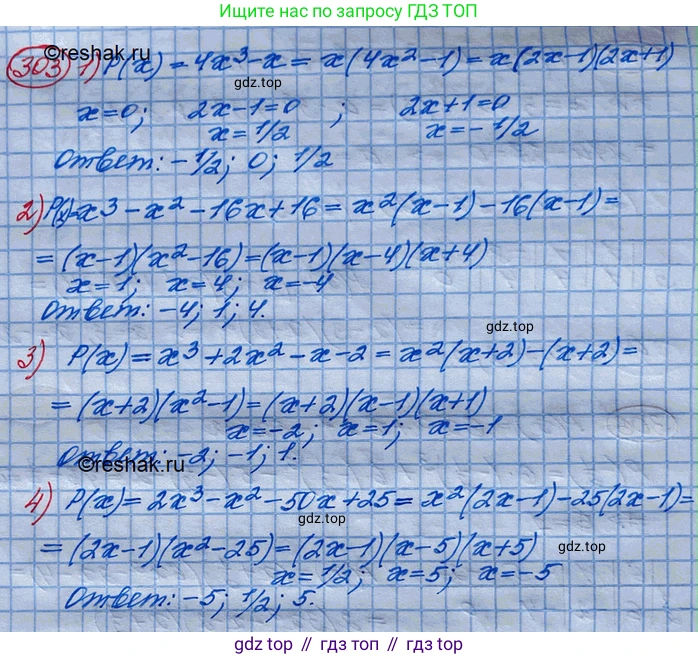 Ищите нас по запросу ГДЗ ТОП
©reshak.ru
303) 1) P(x) = 4x³-x = x(4x²-1) = x(2x-1)(2x+1)
x=0; 2x-1=0 ; 2x+1=0
x=1/2 x=-1/2
gdz.top
Ответ: -1/2; 0; 1/2
2) P(x)=x³-x²-16x+16 = x²(x-1)-16(x-1)=
=(x-1)(x²-16)=(x-1)(x-4)(x+4)
x=1; x=4; x=-4
Ответ: -4; 1; 4.
gdz.top
3) P(x)=x³+2x²-x-2=x²(x+2)-(x+2)=
=(x+2)(x²-1)=(x+2)(x-1)(x+1)
x=-2; x=1; x=-1
Ответ: -2; -1; 1.
©reshak.ru
4) P(x)=2x³-x²-50x+25=x²(2x-1)-25(2x-1)=
gdz.top
=(2x-1)(x²-25)=(2x-1)(x-5)(x+5)
gdz.top
x=1/2; x=5; x=-5
Ответ: -5; 1/2; 5.
gdz.top // gdz.top // gdz.top // gdz.top